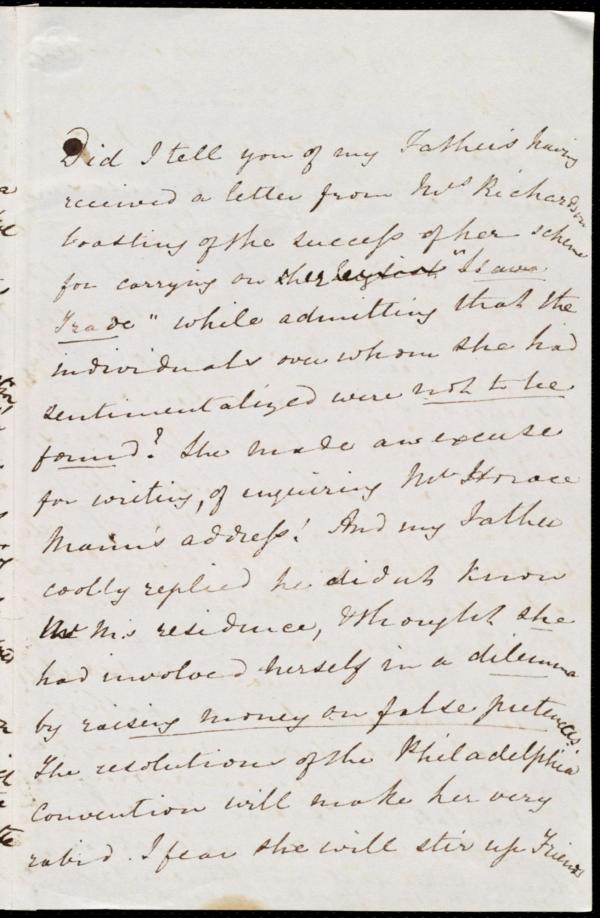 Did I tell you of my Father's having
received a letter from Mrs Richardson
boasting of the success of her scheme
for carrying on "Slave
Trade" while admitting that the
individuals over whom she had
sentimentalized were not to be
found? She made an excuse
for writing, of enquiring Mr Horace
Mann's address! And my Father
coolly replied he didn't know
his residence, & thought she
had involved herself in a dilemma
by raising money on false pretences!
The resolutions of the Philadelphia
Convention will make her very
rabid. I fear she will stir up Friends